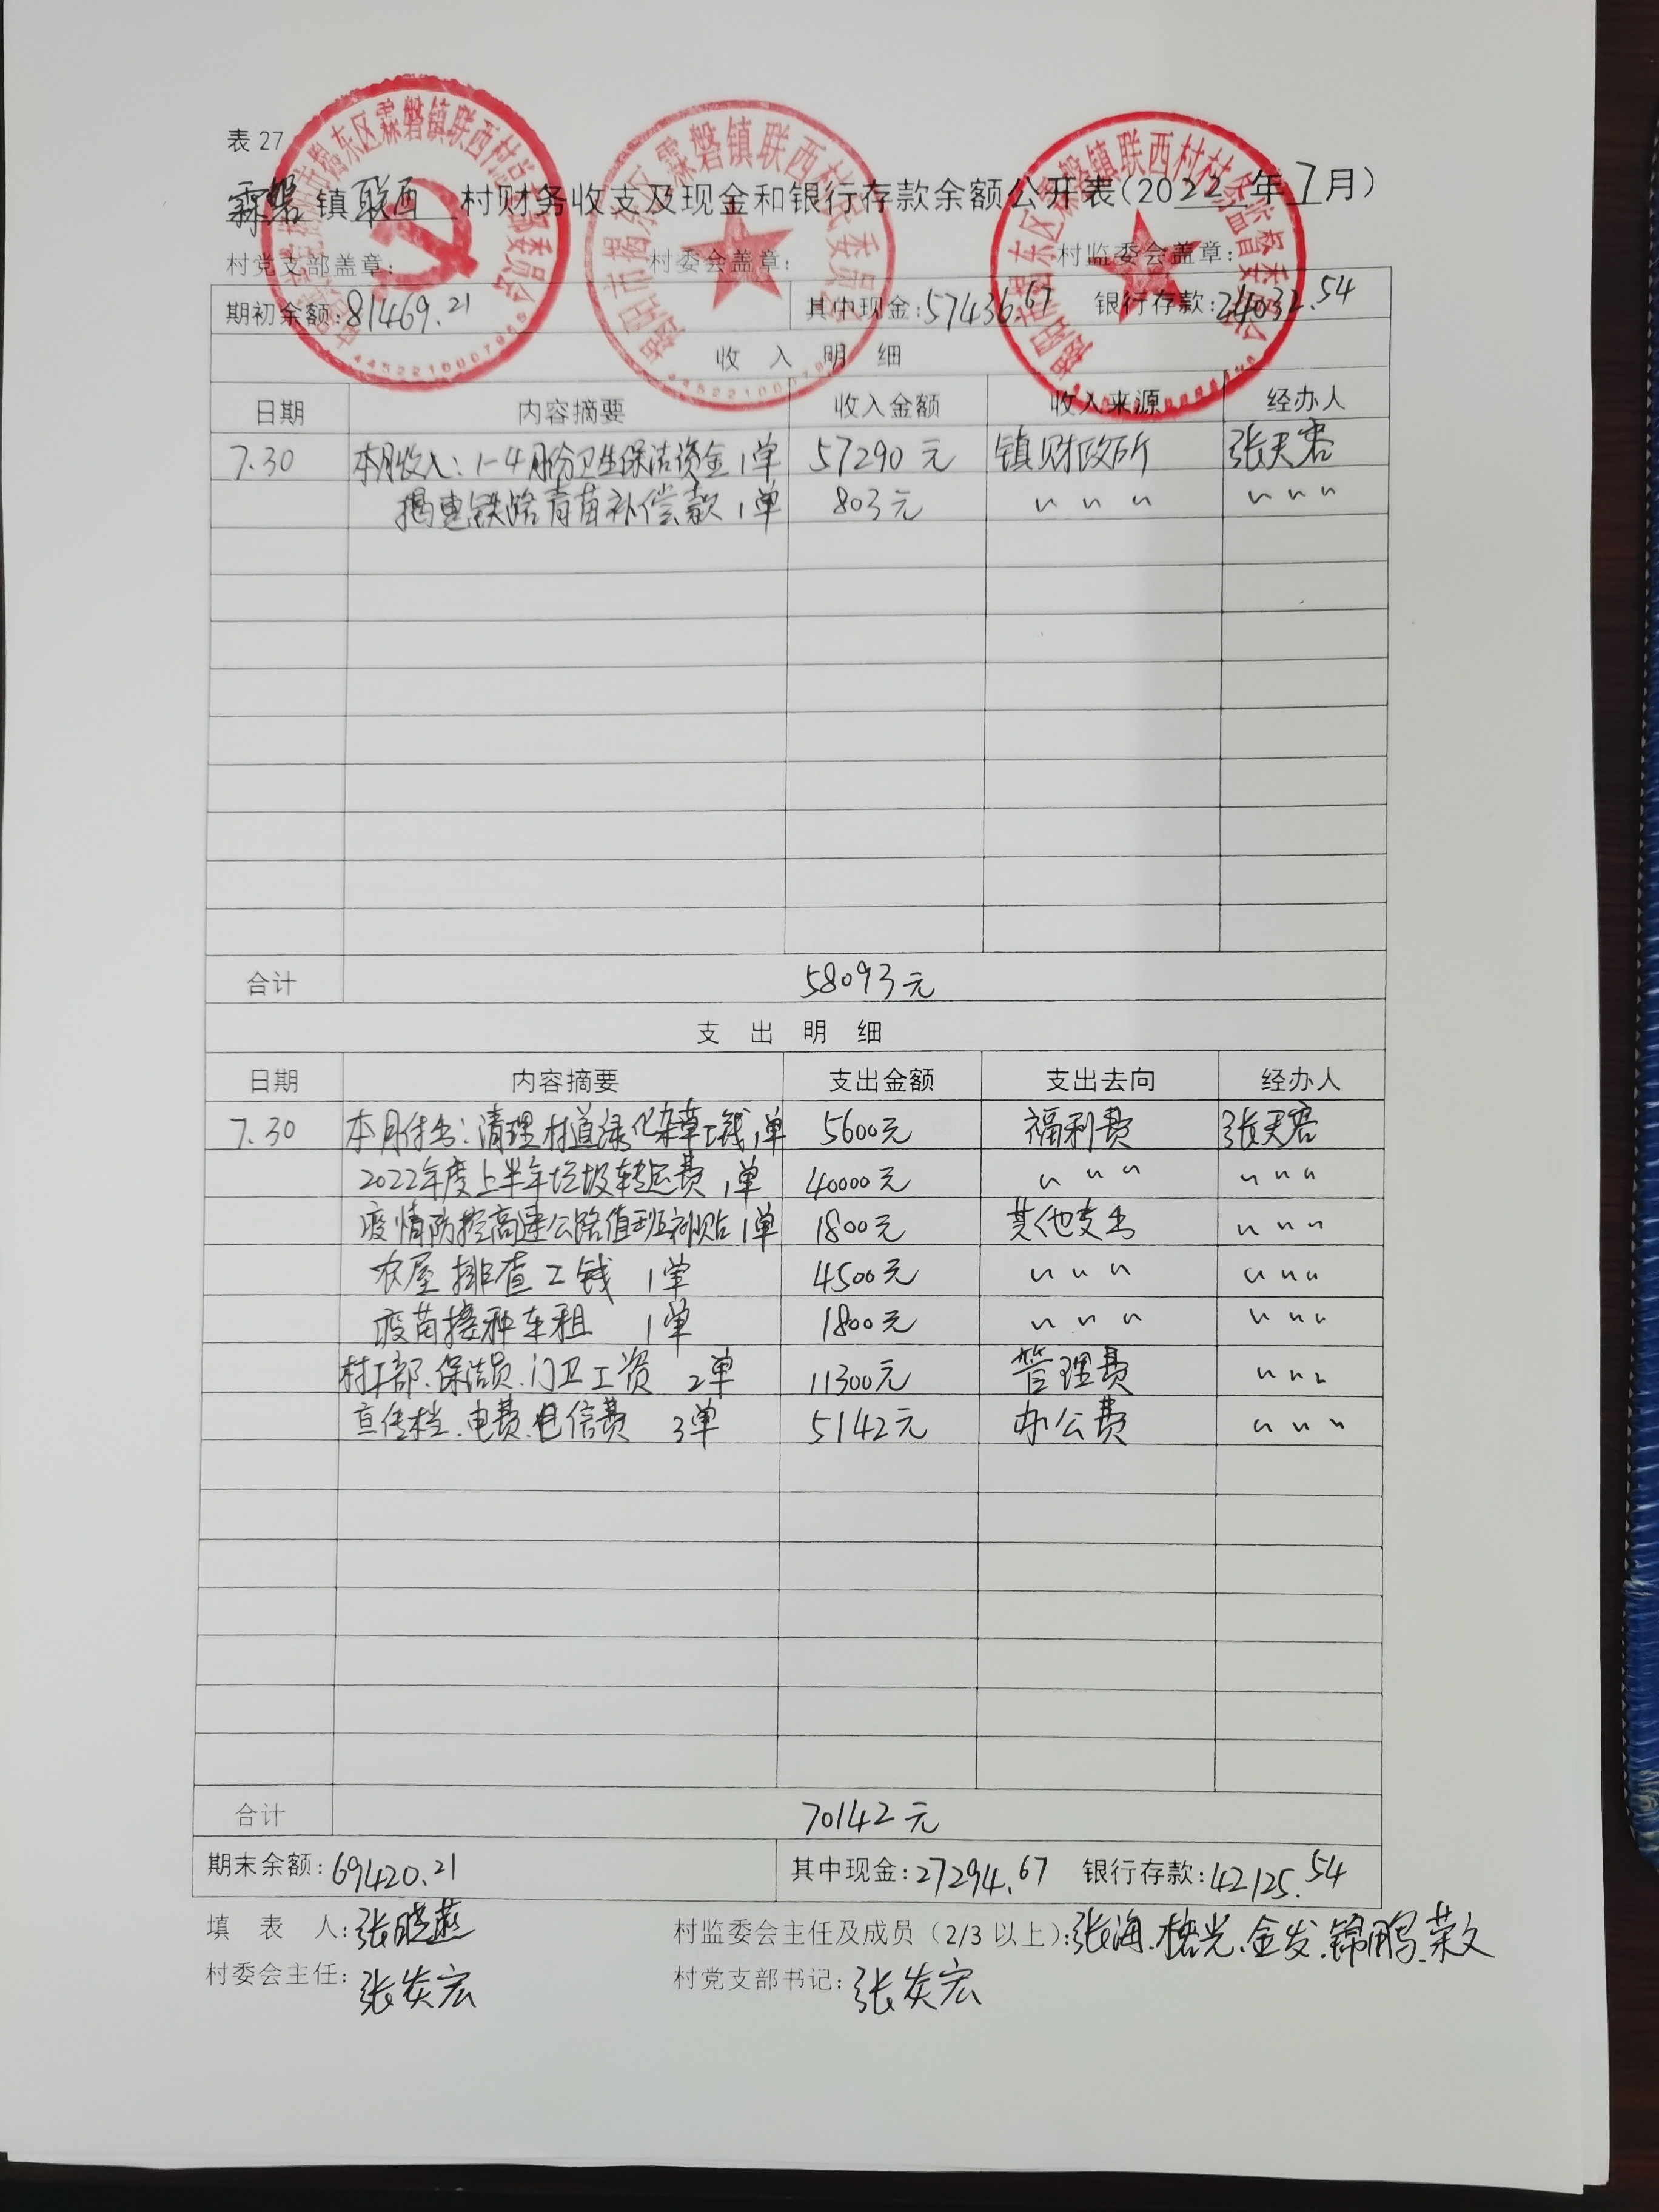 表 27
霖磐 镇 联西 村财务收支及现金和银行存款余额公开表(2022年7月)
村党支部盖章： 村委会盖章： 村监委会盖章：
期初余额:81469.21 其中现金:57436.67 银行存款:24032.54
收 入 明 细
日期 内容摘要 收入金额 收入来源 经办人
7.30 本月收入：1-4月份卫生保洁资金1单 57290元 镇财政所 张天君
揭惠铁路青苗补偿款1单 803元 〃 〃 〃 〃 〃 〃
合计 58093元
支 出 明 细
日期 内容摘要 支出金额 支出去向 经办人
7.30 本月付出：清理村道绿化杂草工钱1单 5600元 福利费 张天君
2022年度上半年垃圾转运费1单 40000元 〃 〃 〃 〃 〃 〃
疫情防控高速公路值班补贴1单 1800元 其他支出 〃 〃 〃
农屋排查工钱 1单 4500元 〃 〃 〃 〃 〃 〃
疫苗接种车租 1单 1800元 〃 〃 〃 〃 〃 〃
村干部.保洁员.门卫工资 2单 11300元 管理费 〃 〃 〃
宣传栏.电费.电信费 3单 5142元 办公费 〃 〃 〃
合计 70142元
期末余额:69420.21 其中现金:27294.67 银行存款:42125.54
填 表 人:张晓燕 村监委会主任及成员（2/3 以上）:张海.楚光.金发.锦鹏.荣文
村委会主任:张炎宏 村党支部书记:张炎宏